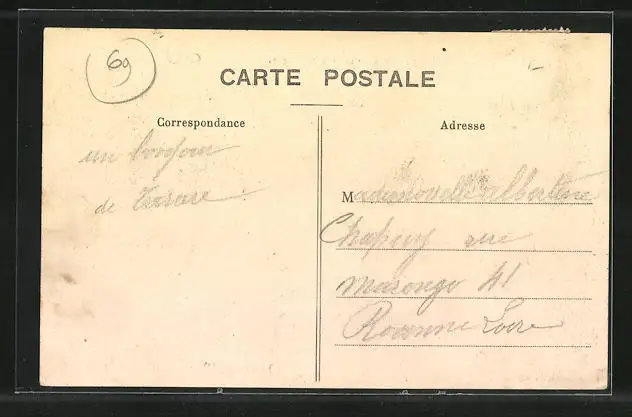 69
CARTE POSTALE
Correspondance
Adresse
un bonjour
de Tarare
Mademoiselle Albertine
Chapuy rue
Marengo 41
Roanne Loire